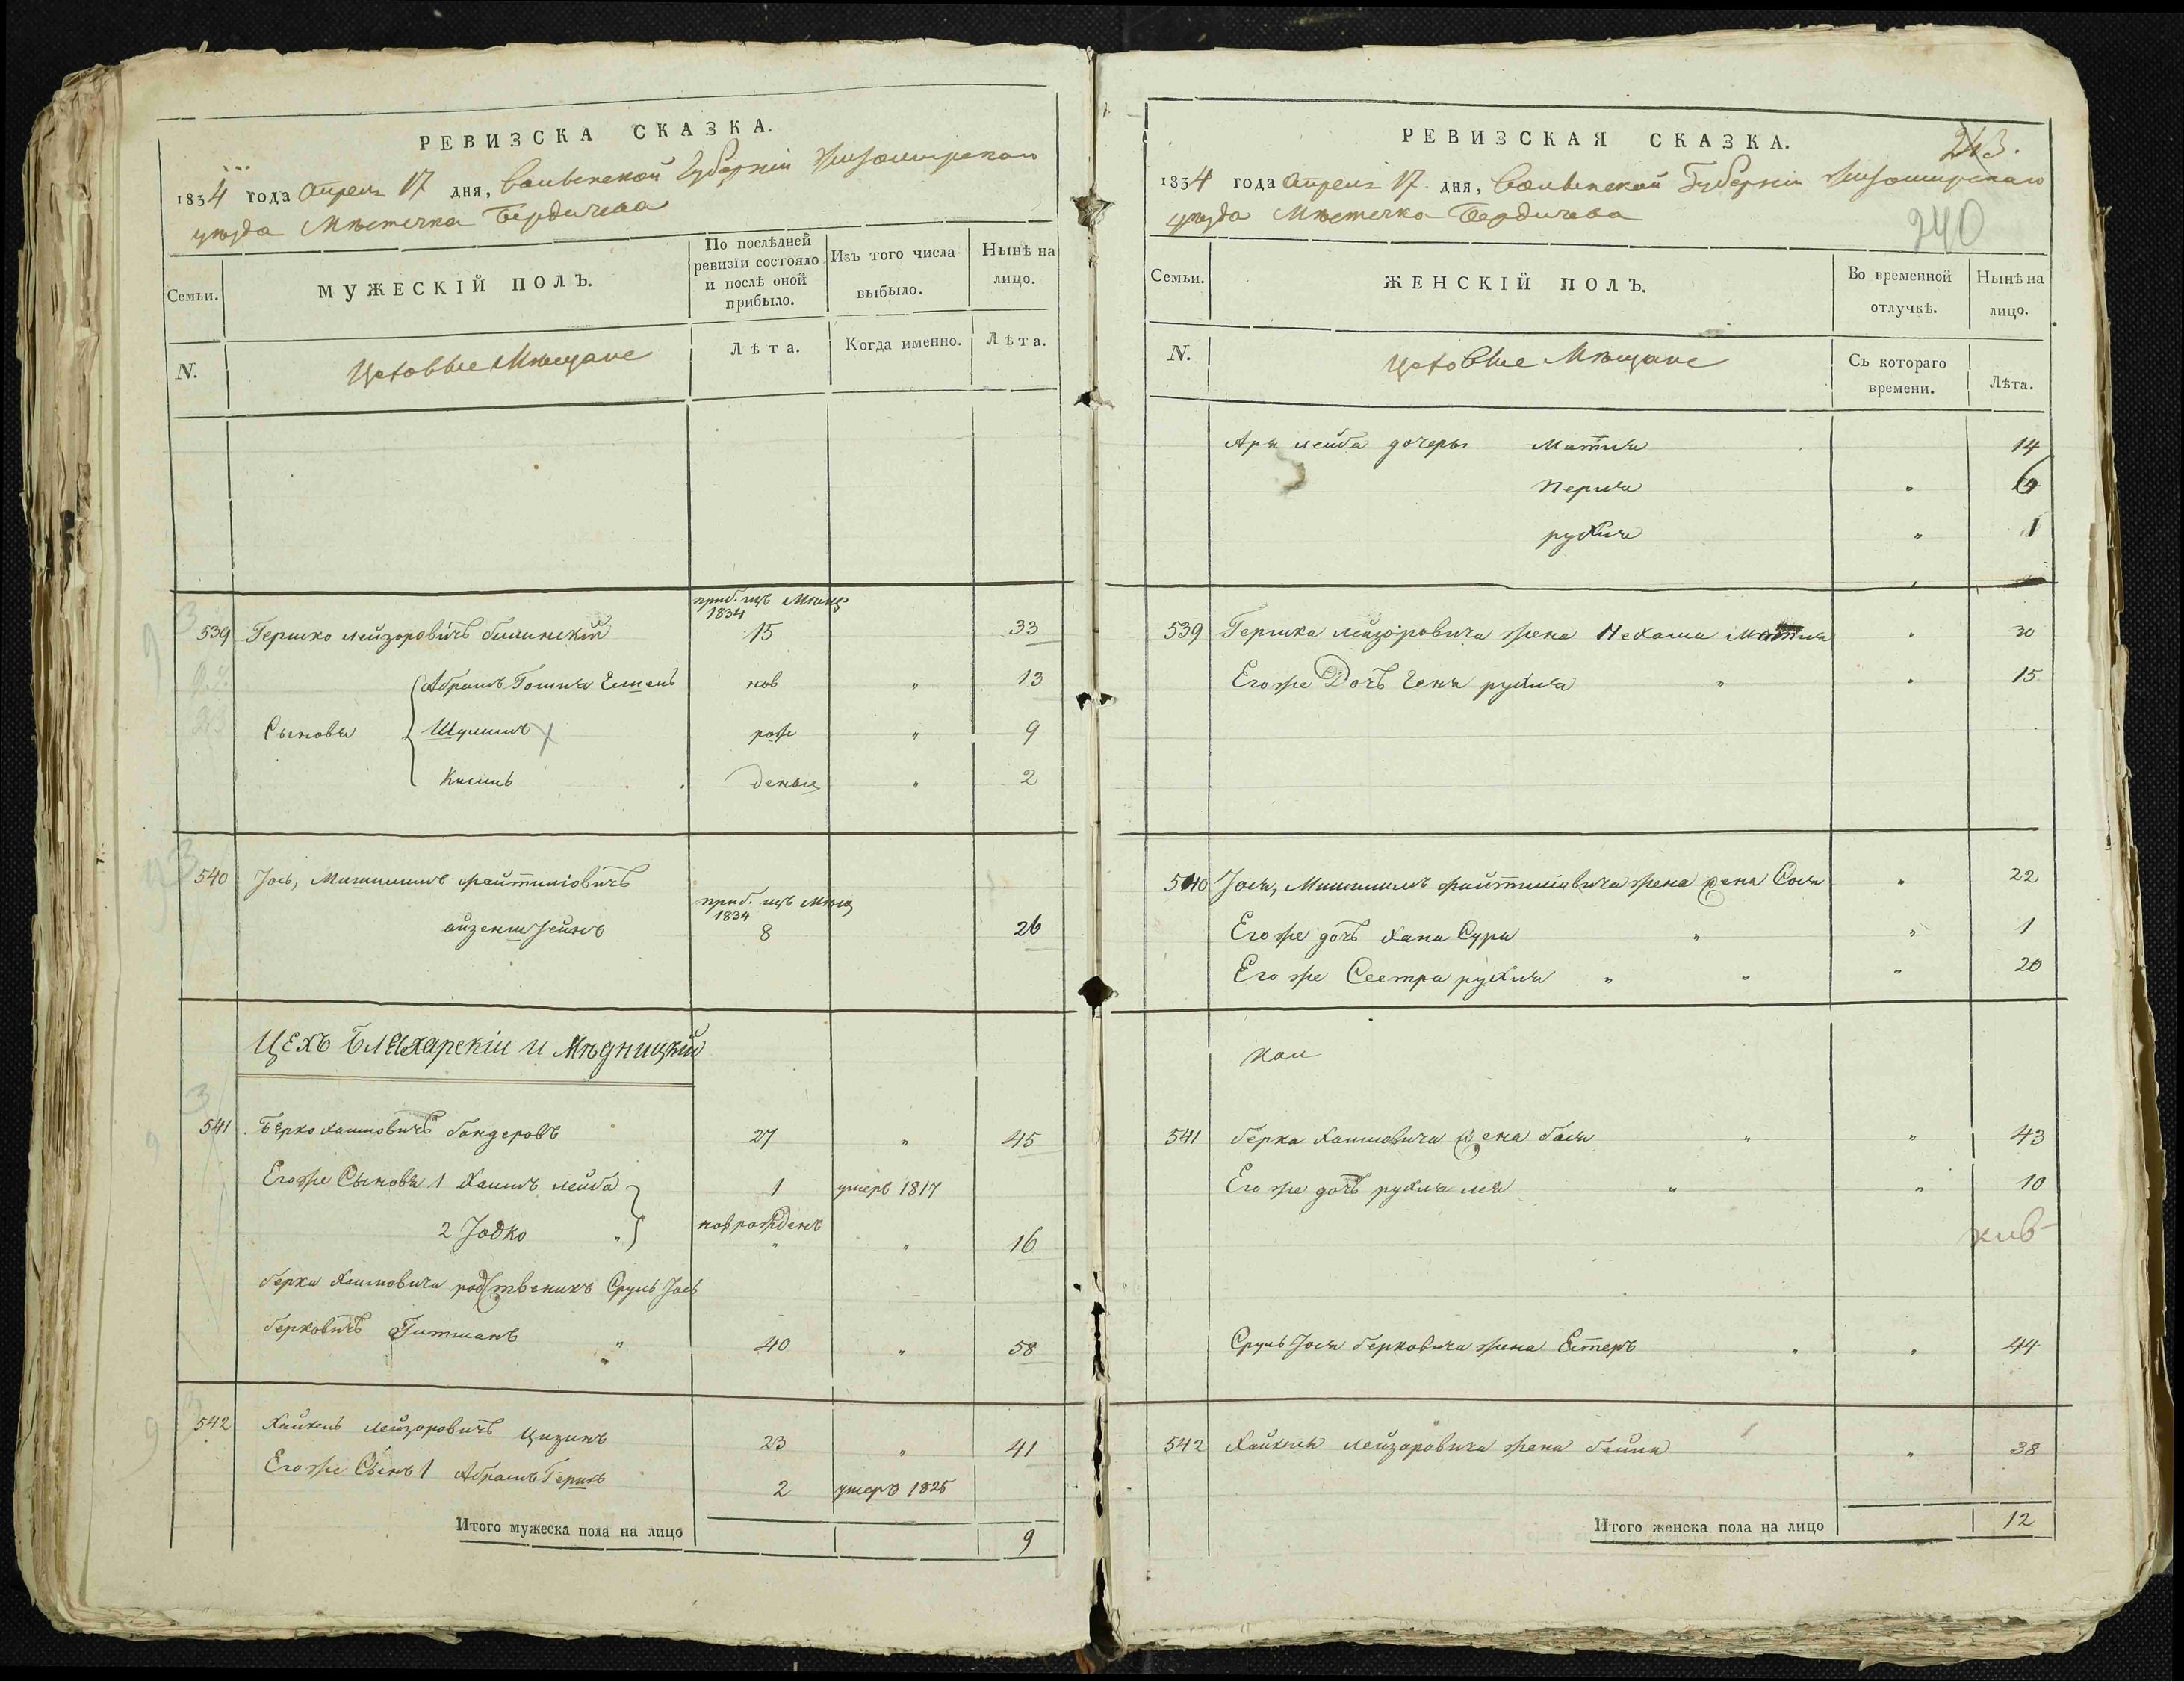 РЕВИЗСКА СКАЗКА.
1834 года Апреля 17 дня, Волынской Губернии Житомирскаго
уезда Мѣстечка Бердичева
Семьи.
МУЖЕСКІЙ ПОЛЪ.
По послѣдней ревизіи состояло и послѣ оной прибыло.
Изъ того числа выбыло.
Нынѣ на лицо.
N.
Цеховые Мѣщане
Лѣта.
Когда именно.
Лѣта.
приб. изъ Мѣщ
1834
539 Гершко Лейзоровичъ 15 33
Абрамъ нов " 13
Сыновья Шулимъ рож " 9
деные " 2
540 Іось, Файтиліовичъ
приб. изъ Мѣщ
1834
айзенштейнъ 8 26
Цехъ Бляхарскіи и Мѣдницкій
541 Берко Хаимовичъ Бондеровъ 27 " 45
Егоже Сыновья 1 Хаимъ лейба 1 умеръ 1817
2 Іодко " новрожденъ " 16
Берка Хаимовича родственикъ Сруль Іось
Берковичъ Гитманъ " 40 " 58
542 Хайкель Лейзоровичъ Цизинъ 23 " 41
Егоже Сынъ 1 Абрамъ Гершъ 2 умеръ 1825
Итого мужеска пола на лицо 9
РЕВИЗСКАЯ СКАЗКА.
243.
1834 года Апреля 17 дня, Волынской Губернии Житомирскаго
уезда Мѣстечка Бердичева
240
Семьи.
ЖЕНСКІЙ ПОЛЪ.
Во временной отлучкѣ.
Нынѣ на лицо.
N.
Цеховые Мѣщане
Съ котораго времени.
Лѣта.
Аря лейба дочеры Матля 14
Перля "
рухля " 1
539 Гершка лейзоровича жена Нехама " 30
Егоже Дочъ Геня рухля " " 15
540 Іося, файтиліовича жена Сося " 22
Егоже дочъ Хана Сура " " 1
Егоже Сестра рухля " " " 20
541 Берка Хаимовича жена бася " " 43
Егоже дочъ рухля лея " " 10
Сруль Іося берковича жена Естеръ " " 44
542 Хайкеля лейзоровича жена бейла " 38
Итого женска пола на лицо 12